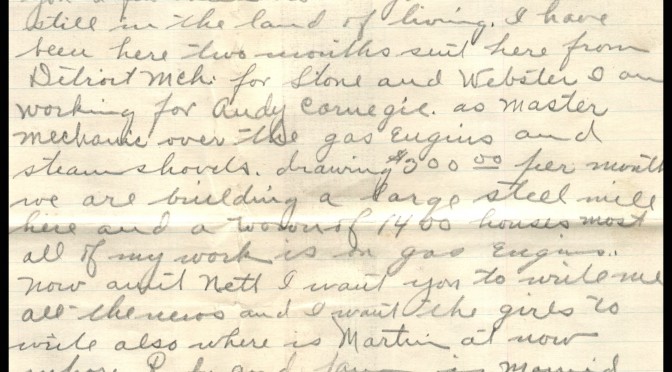 you a few
still in the land of living. I have
been here two months sent here from
Detroit Mch. for Stone and Webster I am
working for Andy Carnegie. as Master
Mechanic over the gas Engins and
steam shovels. drawing $300 00 per month
we are building a large steel mill
here and a town of 1400 houses most
all of my work is on gas Engins.
Now aunt Nett I want you to write me
all the news and I want the girls to
write also where is Martin at now
and is Married